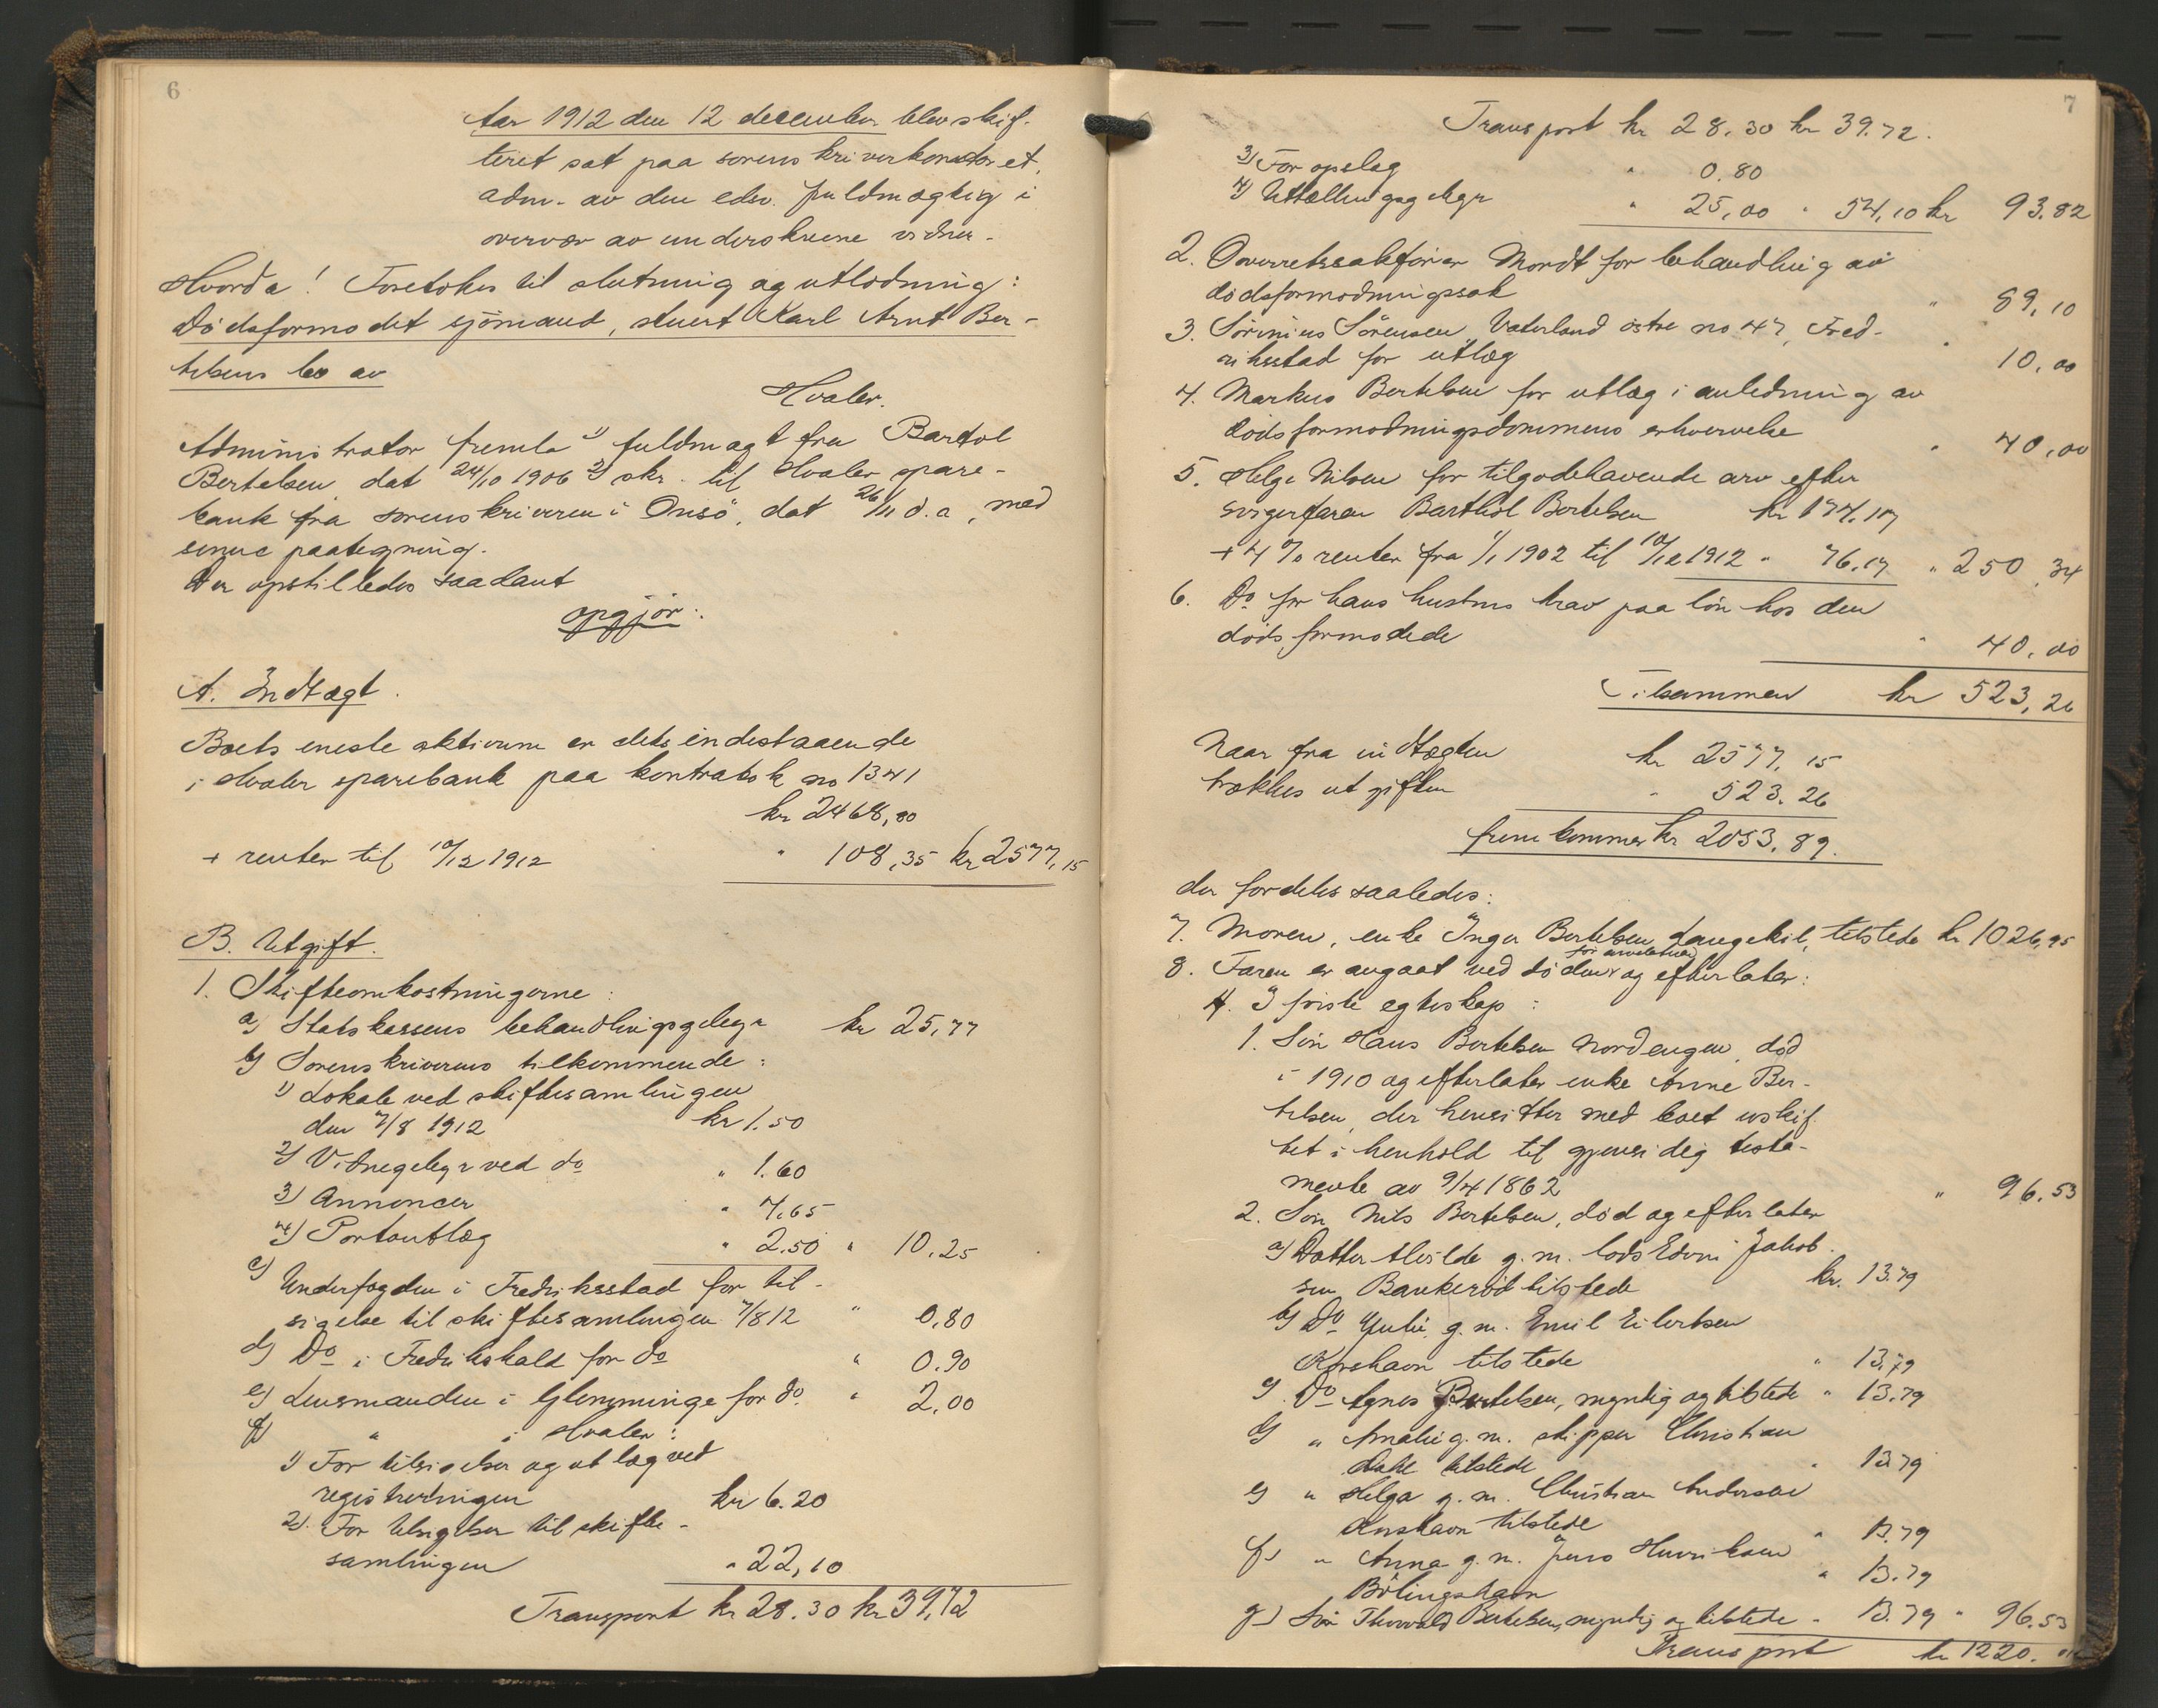 6
Aar 1912 den 12 december blev skif-
teret sat paa sorenskriverkontoret,
adm. av den edsv. fuldmægtig i
overvær av underskrevne vidner.
Hvorda! Foretokes til slutning og utlodning:
Dødsformodet sjømand, stuert Karl Arnt Ber-
telsens bo av
Hvaler.
Administrator fremla 1) fuldmagt fra Bartol
Bertelsen dat 24/10 1906 2) skr. til Hvaler spare-
bank fra sorenskriveren i Onsö, dat 26/11 d.a, med
sinne paategning.
Der opstilledes saadant
opgjør:
A. Indtægt.
Boets eneste aktivum er dets indestaaende
i Hvaler sparebank paa kontrabok no 1341
kr 2468,80
+ renter til 10/12 1912 " 108,35 kr 2577,15
B. Utgift.
1. Skifteomkostningerne:
a) Statskassens behandlingsgebyr kr 25,77
b) Sorenskriverens tilkommende:
1) Lokale ved skiftesamlingen
den 7/8 1912 kr 1.50
2) Vidnegebyr ved do " 1.60
3) Annoncer " 4.65
4) Portoutlæg " 2.50 " 10.25
c) Underfogden i Fredriksstad for til-
sigelse til skiftesamlingen 7/8 12 " 0,80
d) Do i Fredrikshald for do " 0.90
e) Lensmanden i Glemminge for do " 2,00
f) " i Hvaler:
1) For tilsigelser og utlæg ved
registreringen kr 6.20
2) For tilsigelser til skifte-
samlingen " 22,10
Transport kr 28.30 kr 39,72
7
Transport kr 28.30 kr 39.72.
3) For opslag " 0.80
4) Utællingsgebyr " 25,00 " 54,10 kr 93.82
2. Overretssakfører Mordt for behandling av
dødsformodningssak " 89,10
3. Sörinius Sörensen, Vaterland østre no 47, Fred-
riksstad for utlæg " 10,00
4. Markus Bertelsen for utlæg i anledning av
dødsformodningsdommens erhvervelse " 40,00
5. Helge Nilsen for tilgodehavende arv efter
svigerfaren Barthol Bertelsen kr 174,17
+ 4 % renter fra 1/1 1902 til 10/12 1912 " 76,17 " 250,34
6. Do for hans hustrus krav paa løn hos den
dødsformodede " 40,00
Tilsammen kr 523,26
Naar fra indtægten kr 2577,15
trækkes utgiften " 523.26
fremkommer kr 2053,89.
der fordeles saaledes:
7. Moren, enke Inger Bertelsen Langekil, tilstede kr 1026,95
8. Faren er avgaat ved døden før arvelateren og efterlater:
A. I første egteskap:
1. Søn Hans Bertelsen Nordengen, død
i 1910 og efterlater enke Anne Ber-
telsen, der hensitter med boet uskif-
tet i henhold til gjensidig testa-
mente av 9/4 1862 " 96.53
2. Søn Nils Bertelsen, død og efterlater
a) Datter Hilde g.m. lods Edvin Jakob-
sen Bankerød tilstede kr. 13.79
b) Do Julie g.m. Emil Eilertsen
Korshavn tilstede " 13,79
c) Do Agnes Bertelsen, myndig og tilstede " 13.79
d) " Amalie g.m. skipper Christian
Dahl tilstede " 13.79
e) " Helga g.m. Christian Andersen
Korshavn tilstede " 13.79
f) " Anna g.m. Jens Henriksen
Bölingshavn " 13.79
g) Søn Thorvald Bertelsen, myndig og tilstede " 13.79 " 96.53
Transport kr 1220.